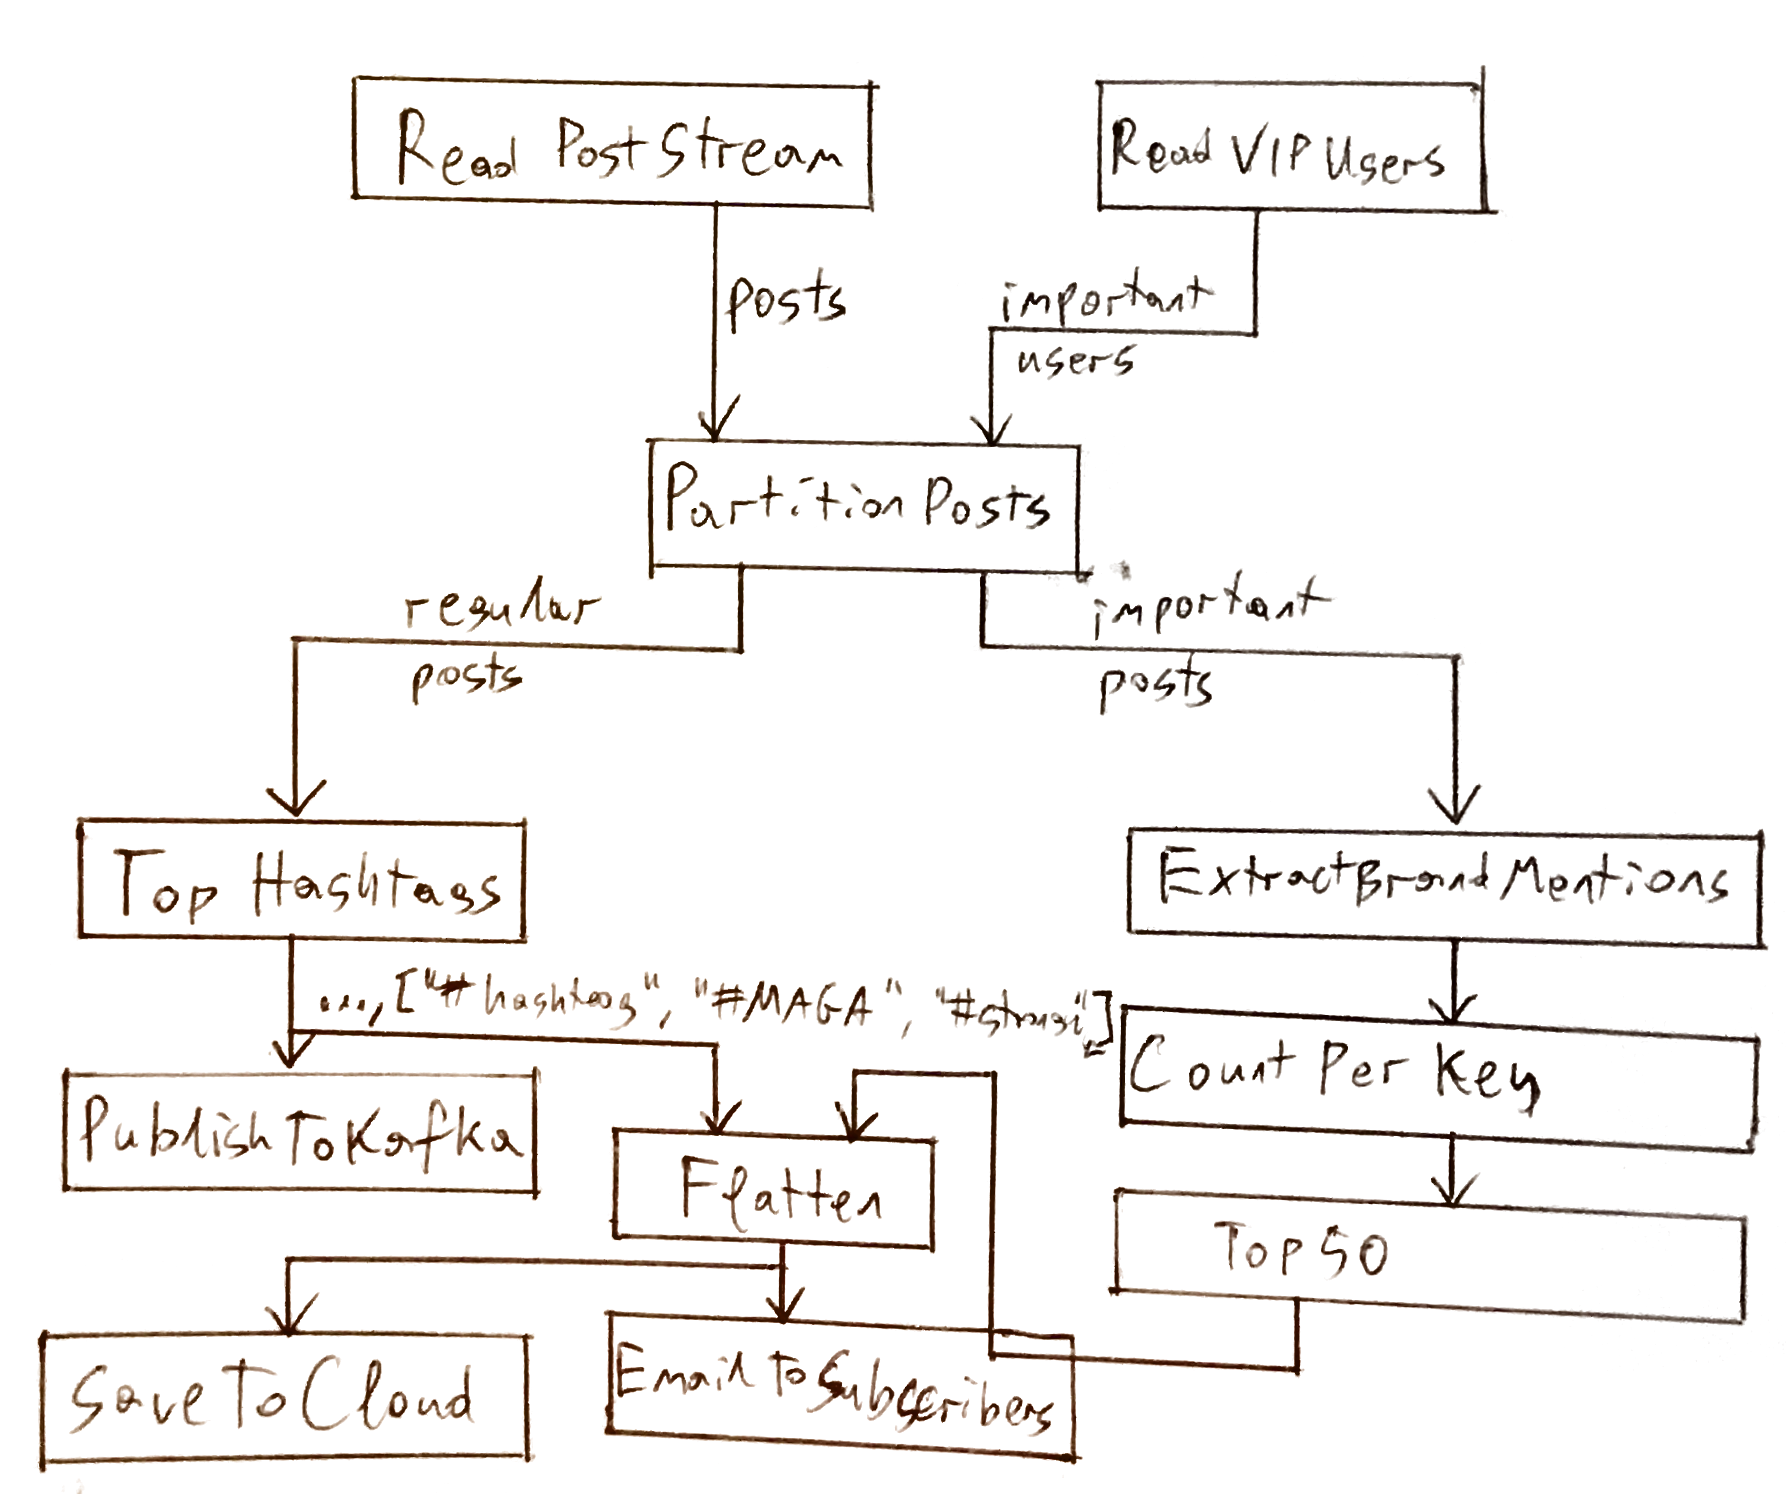 Read Post Stream
Read VIP Users
posts
important
users
Partition Posts
regular
posts
important
posts
Top Hashtags
ExtractBrandMentions
...,["#hashtag", "#MAGA", "
Count Per Key
PublishToKafka
Flatten
Top 50
SaveToCloud
EmailToSubscribers